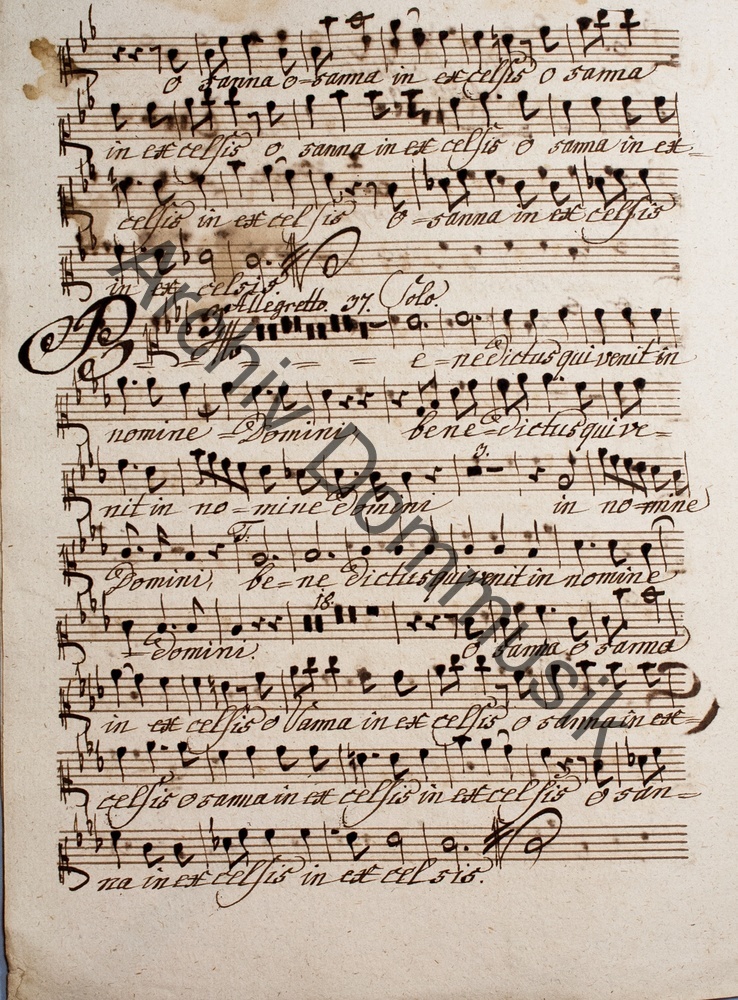 o sanna o=sanna in excelsis o sanna
in excelsis o sanna in excelsis o sanna in ex=
celsis in excelsis o=sanna in excelsis
in excelsis
Allegretto. 37. Solo.
B - - - - - e=nedictus qui venit in
nomine =Domini, bene=dictus qui ve=
3.
nit in no=mine Domini in no=mine
T.
Domini, be=ne dictus qui venit in nomine
18.
=Domini. o sanna o sanna
in excelsis o sanna in excelsis o sanna in ex=
celsis o sanna in excelsis in excelsis o san=
na in excelsis in excelsis.
Archiv Dommusik